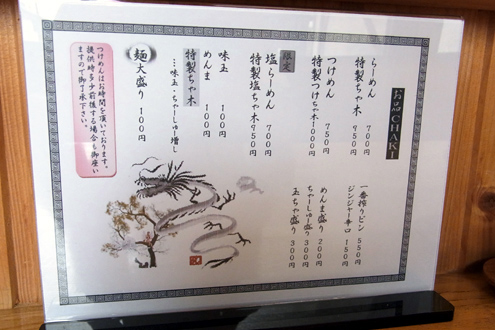 お品CHAKI
らーめん 700円
特製ちゃ木 950円
つけめん 750円
特製つけちゃ木 1000円
限定
塩らーめん 700円
特製塩ちゃ木 950円
味玉 100円
めんま 100円
特製ちゃ木
…味玉、ちゃーしゅー増し
麺大盛り 100円
一番搾りビン 550円
ジンジャー辛口 150円
めんま盛り 200円
ちゃーしゅー盛り 300円
玉ちゃ盛り 300円
つけめんはお時間を頂いております。
提供時多少前後する場合も御座い
ますので御了承下さい。